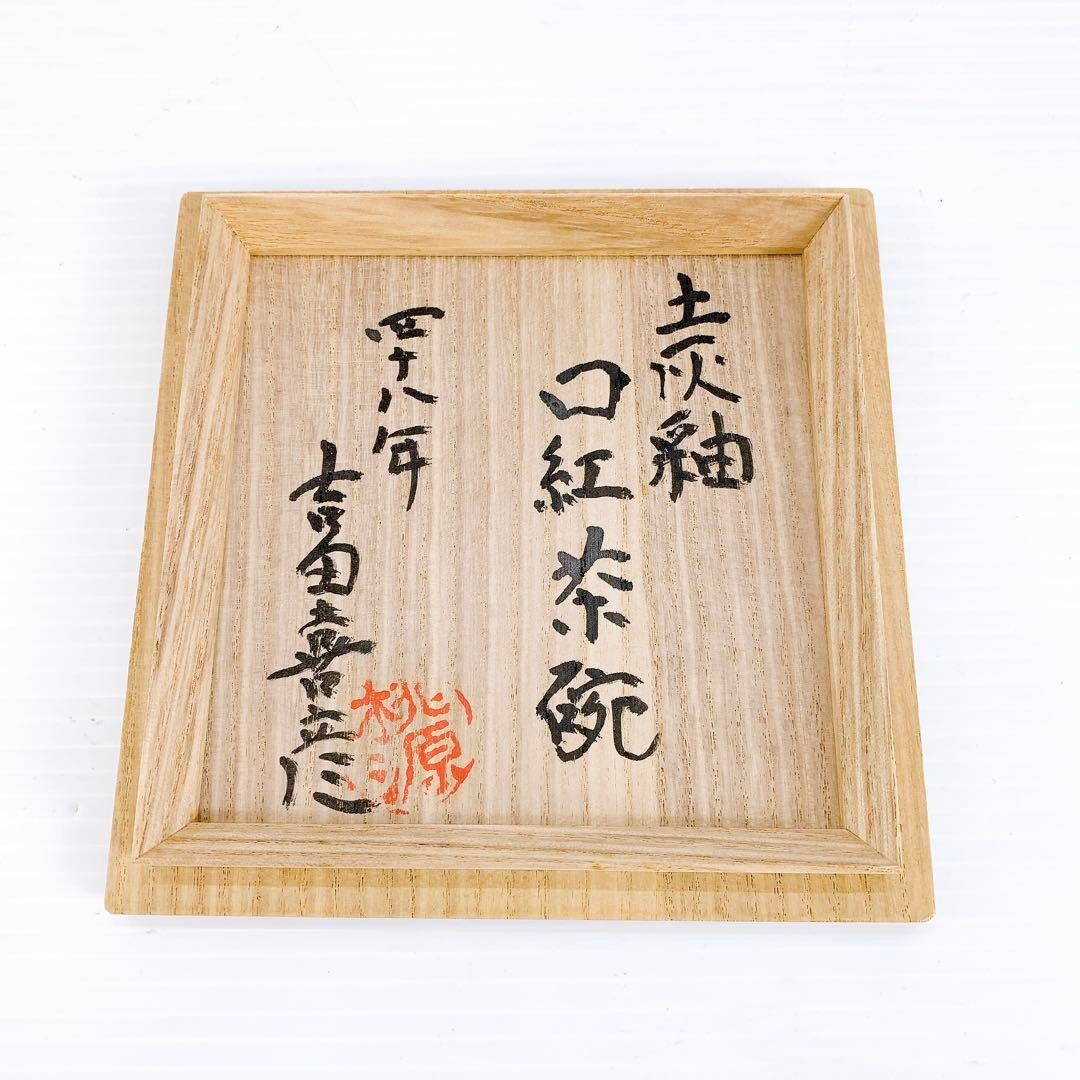 土灰釉
口紅茶碗
四十八年
吉田喜彦
桃源